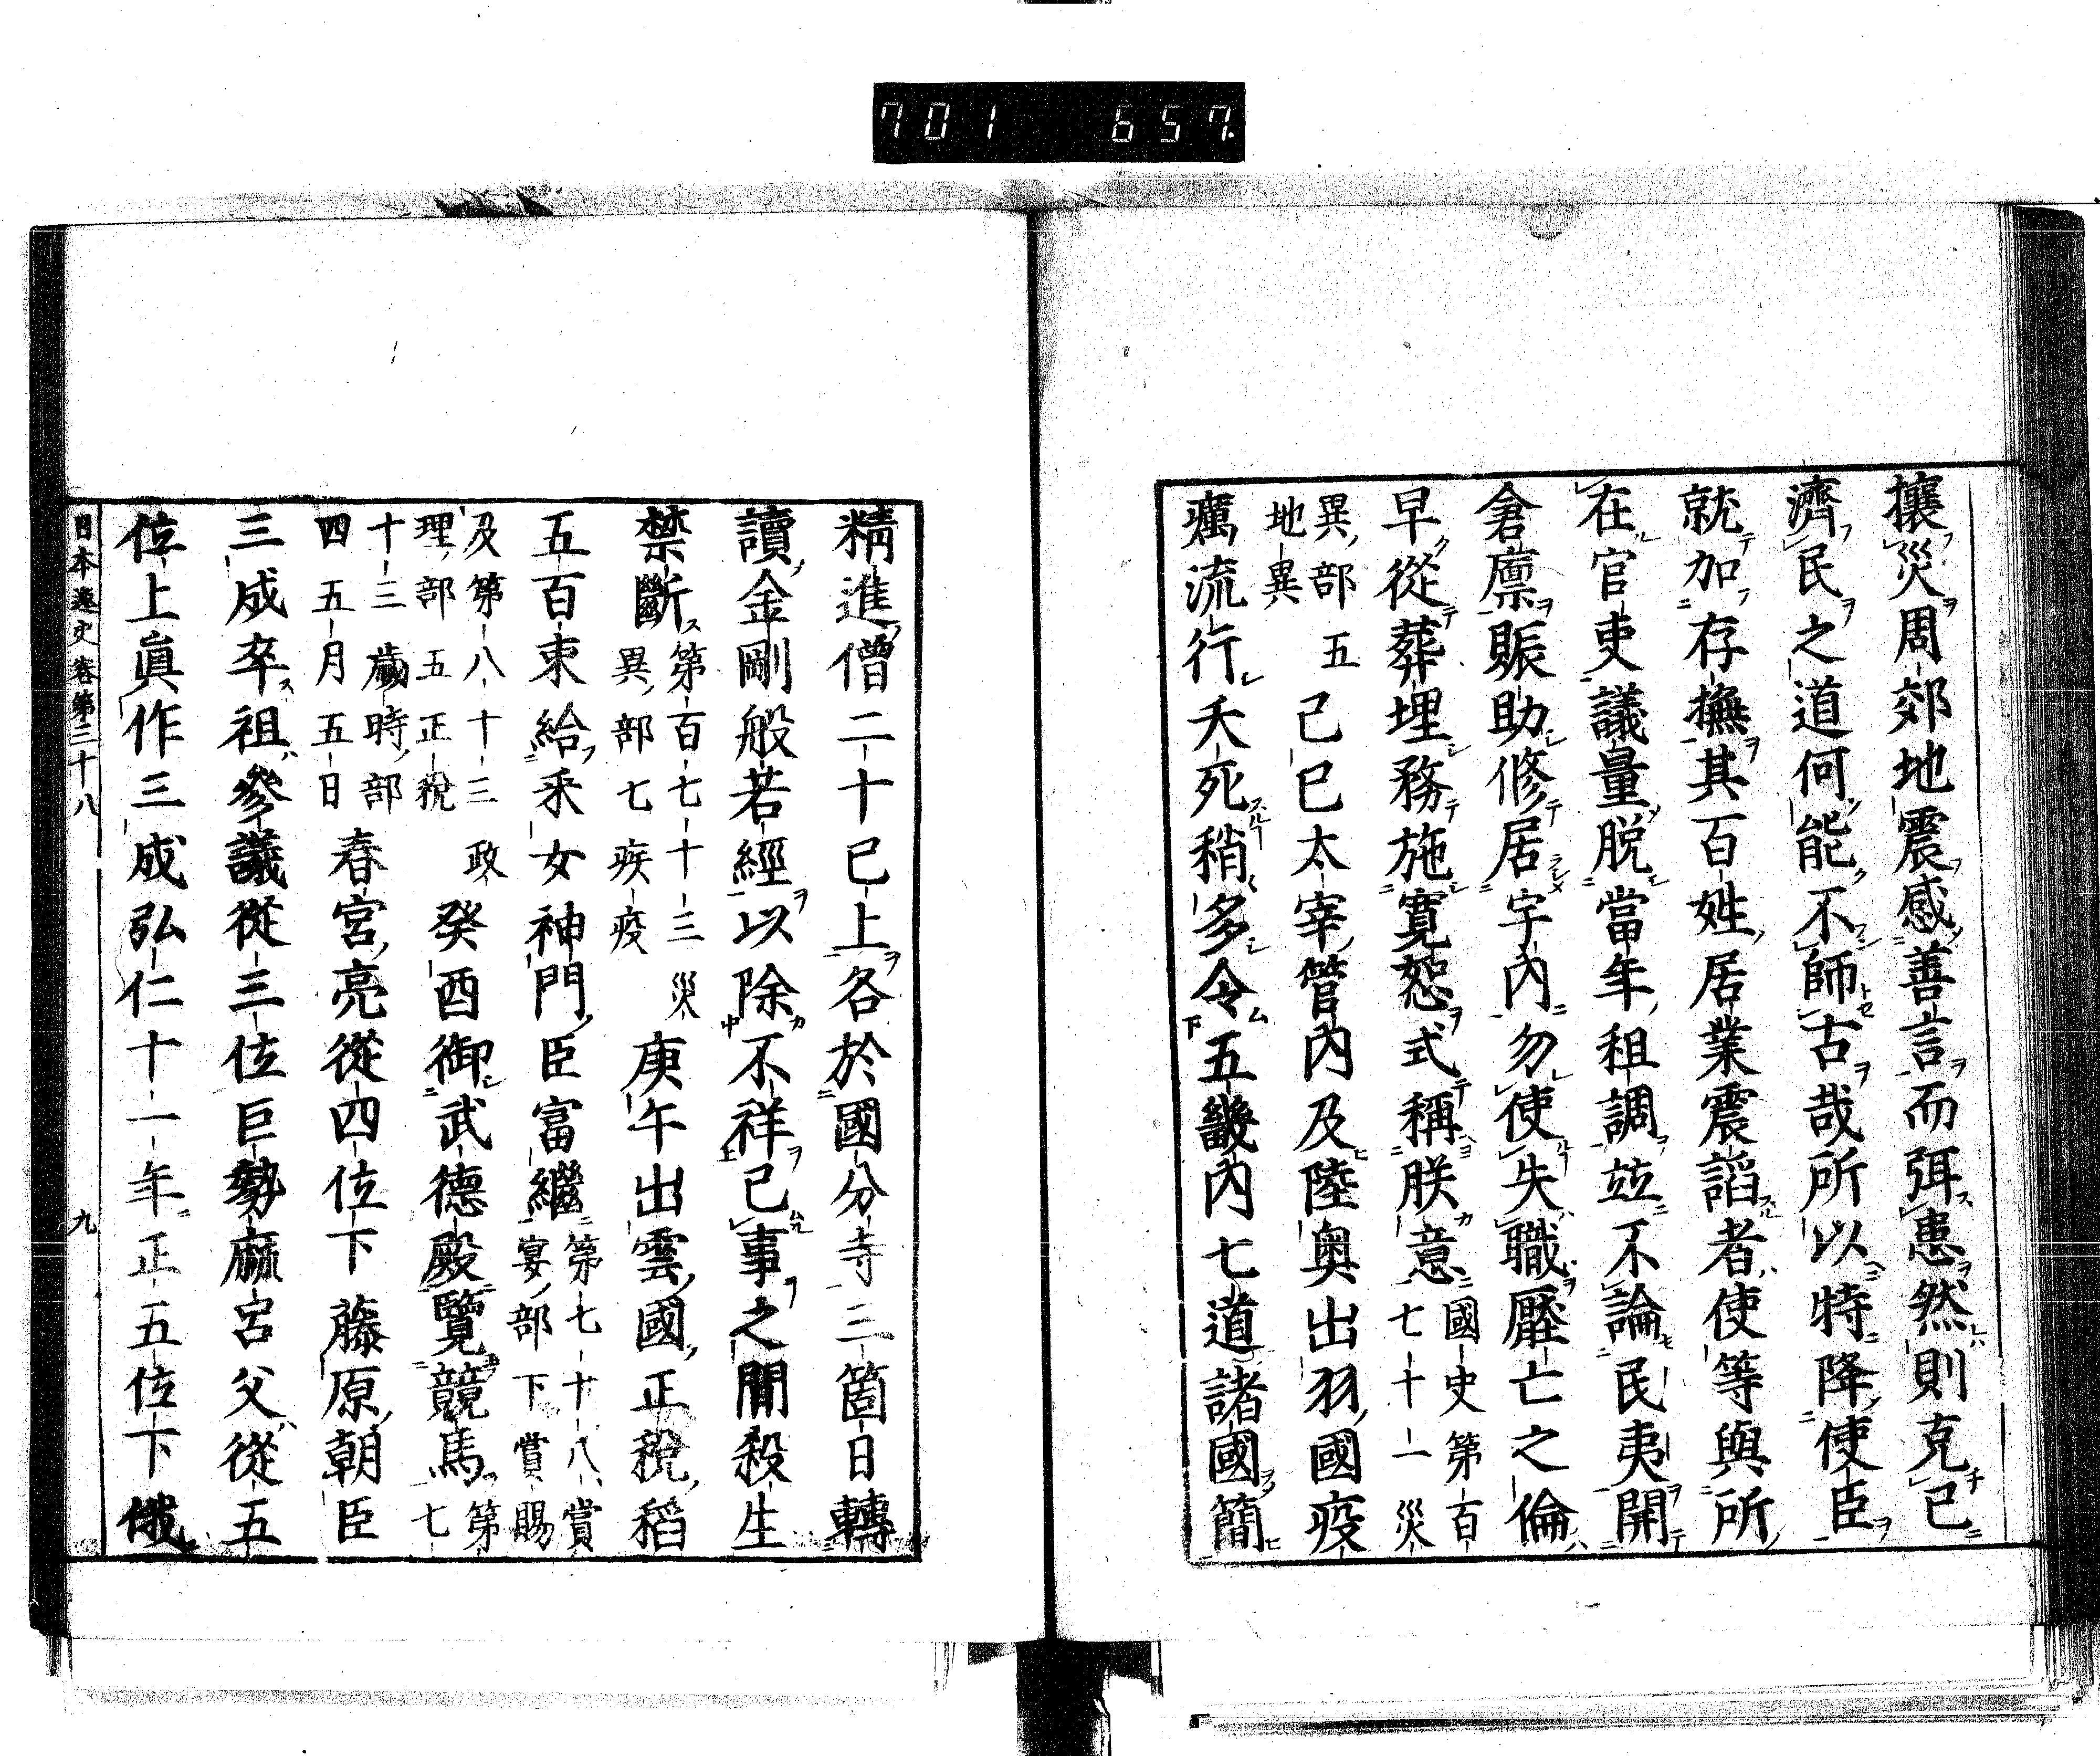 701 657
攘災周郊地震感善言而弭患然則克已
濟民之道何能不師古哉所以特降使臣
就加存撫其百姓居業震謟者使等與所
在官吏議量脱當年租調竝不論民夷開
倉廪賑助修居宇内勿使失職壓亡之倫
早從葬埋務施寛恕式稱朕意國史第百
七十一災
異部五
地異
己巳太宰管内及陸奥出羽國疫
癘流行夭死稍多令五畿内七道諸國簡
精進僧二十已上各於國分寺三箇日轉
讀金剛般若經以除不祥已事之間殺生
禁斷第百七十三災
異部七疾疫
庚午出雲國正税稻
五百束給釆女神門臣富繼第七十八賞
宴部下賞賜
及第八十三政
理部五正税
癸酉御武德殿覽競馬第
七
十三歳時部
四五月五日
春宮亮從四位下藤原朝臣
三成卒祖參議從三位巨勢麻呂父從五
位上眞作三成弘仁十一年正五位下俄
日本逸史卷第三十八
九